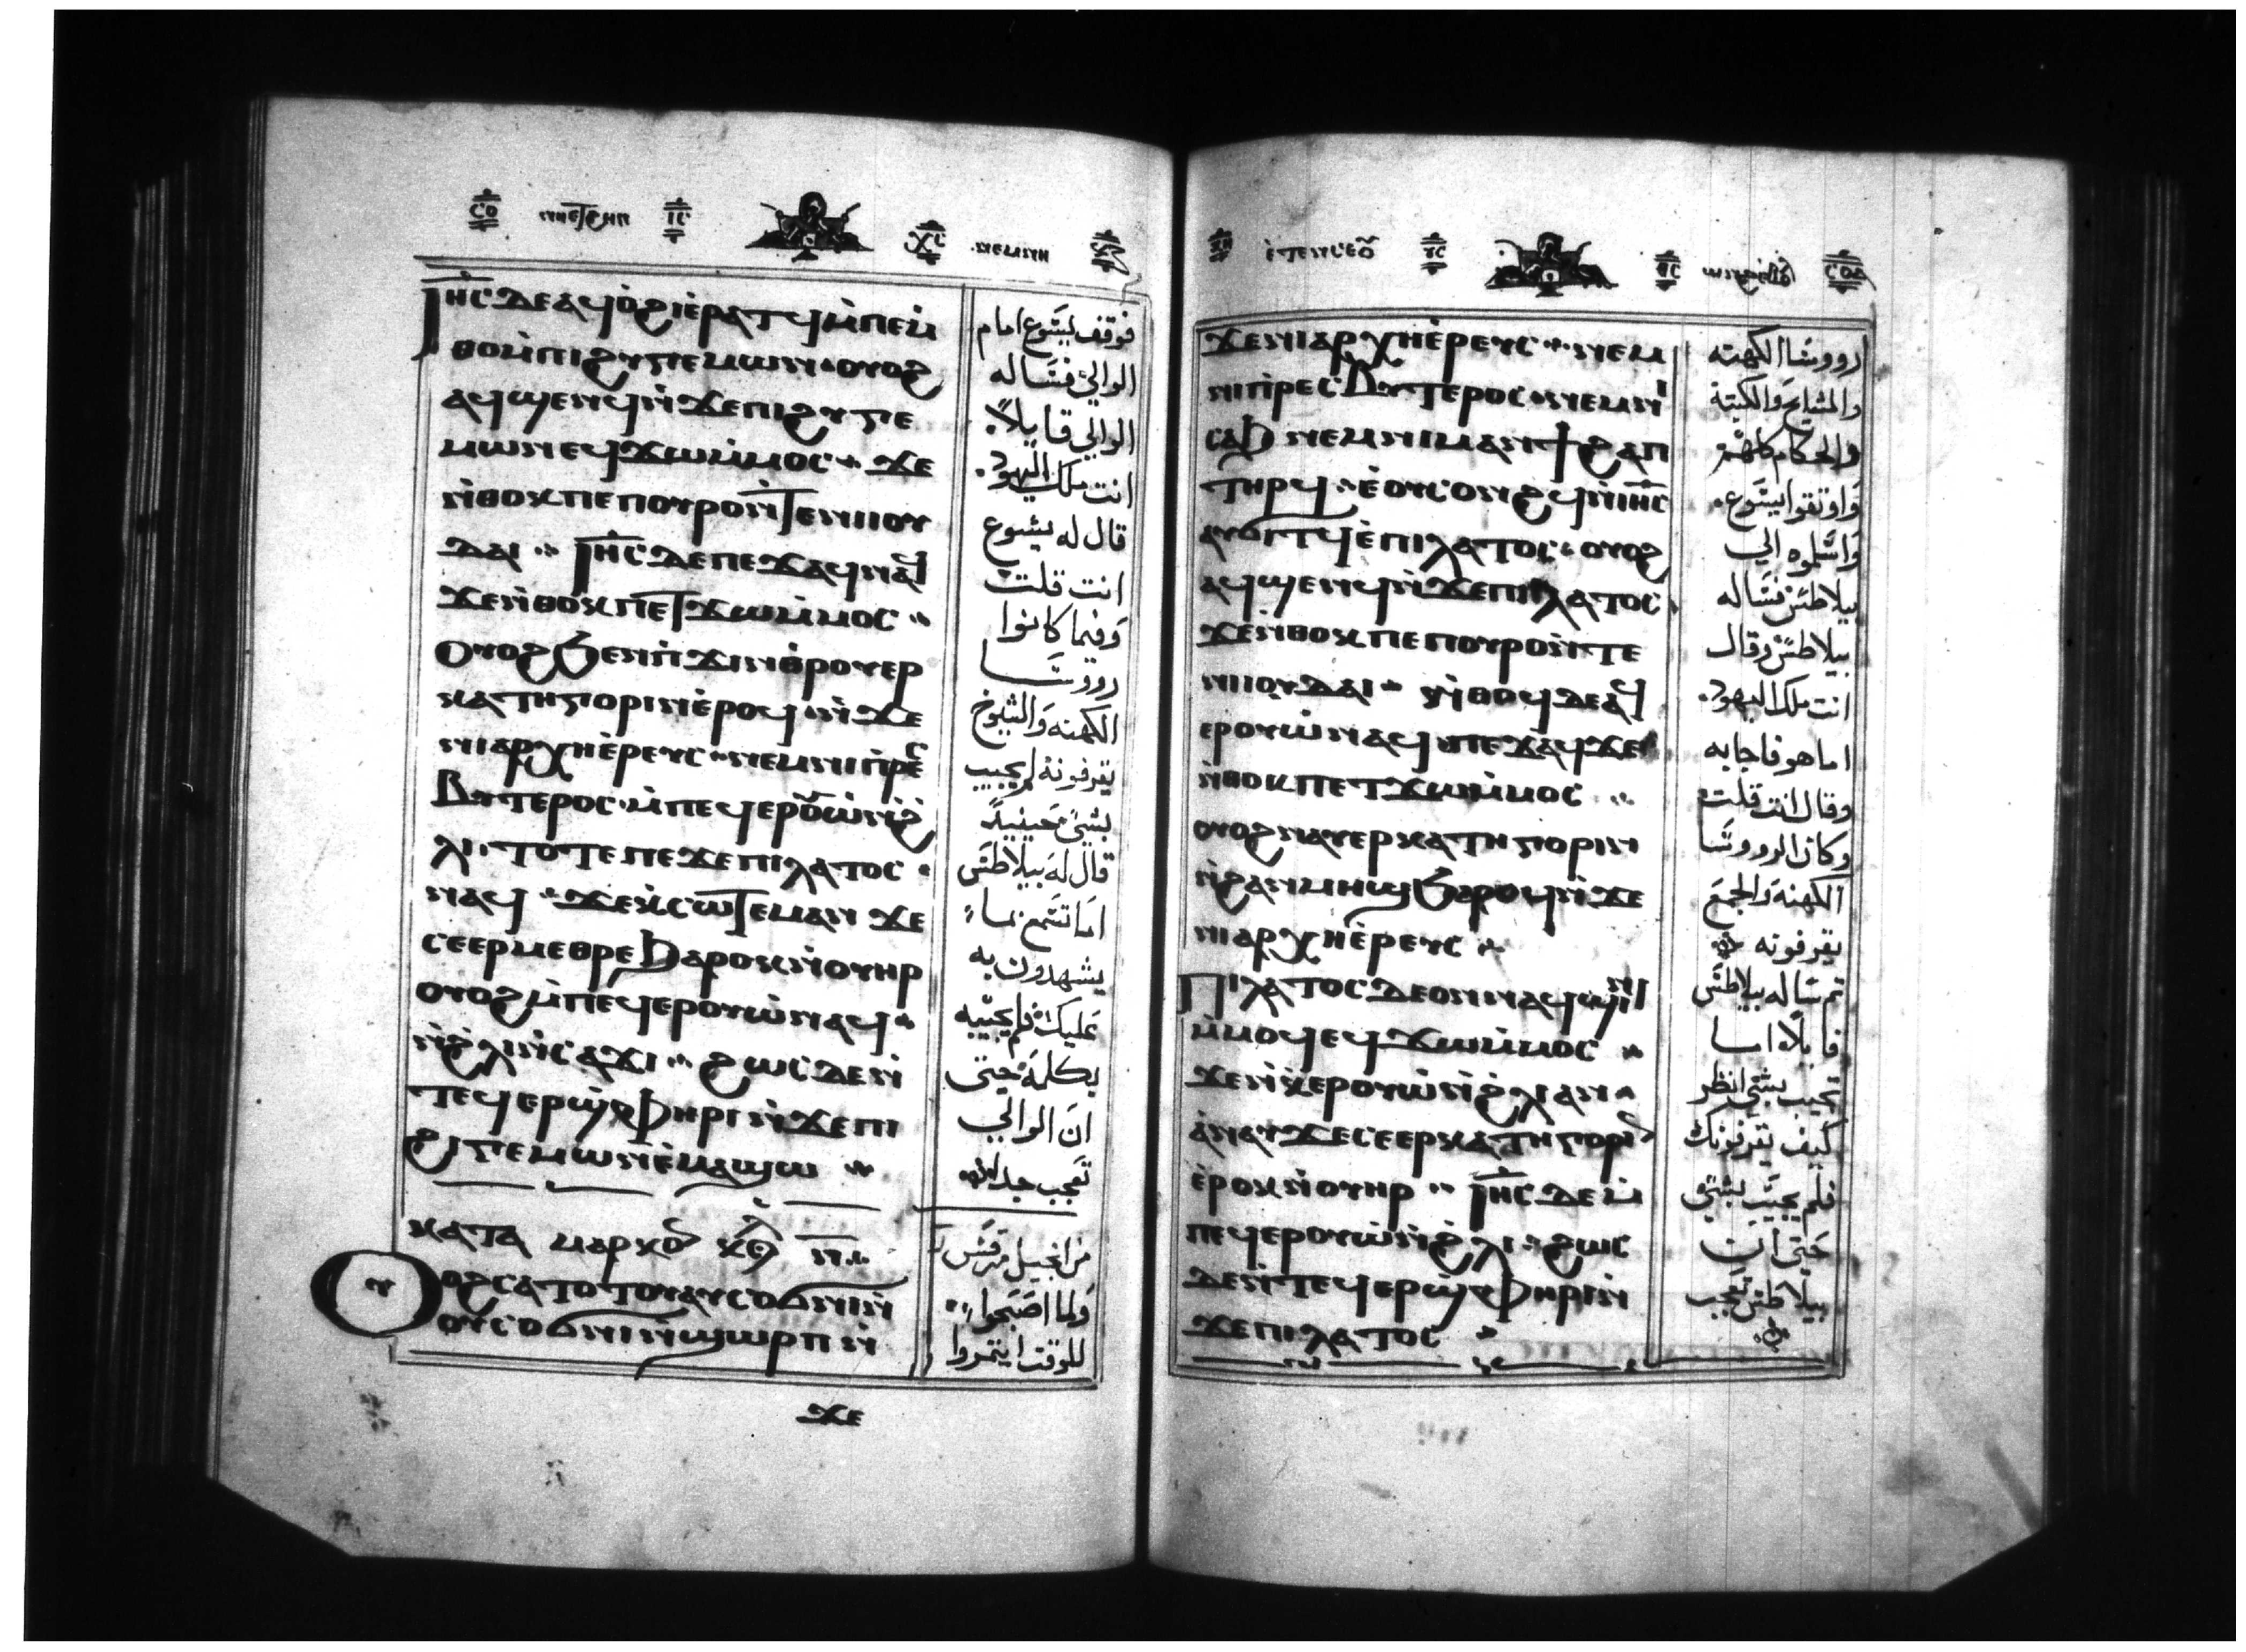 ⲒⲏⲥⲆⲉⲁϥⲟ̀ϩⲓⲉ̀ⲣⲁⲧϥⲙ̀ⲡⲉⲙ̀
ⲑⲟⲙ̀ⲡⲓϩⲩⲅⲉⲙⲱⲛ ⲟⲩⲟϩ
ⲁϥϣⲉⲛϥⲛ̀ϫⲉⲡⲓϩⲩⲅⲉ
ⲙⲱⲛⲉϥϫⲱⲙ̀ⲙⲟⲥ ϫⲉ
ⲛ̀ⲑⲟⲕⲡⲉⲡⲟⲩⲣⲟⲛ̀ⲧⲉⲛⲓⲓⲟⲩ
ⲇⲁⲓ Ⲓⲏⲥⲇⲉⲡⲉϫⲁϥⲛⲁϥ
ϫⲉⲛ̀ⲑⲟⲕⲡⲉⲧϫⲱⲙ̀ⲙⲟⲥ
ⲟⲩⲟϩϧⲉⲛⲡ̀ϫⲓⲛⲑⲣⲟⲩⲉⲣ
ⲕⲁⲧⲏⲅⲟⲣⲓⲛⲉ̀ⲣⲟϥⲛ̀ϫⲉ
ⲛⲓⲁⲣⲭⲏⲉ̀ⲣⲉⲩⲥ ⲛⲉⲙⲛⲓⲡ̀ⲣⲉⲥ
ⲃⲩⲧⲉⲣⲟⲥ ⲙ̀ⲡⲉϥⲉⲣⲟⲩⲱ̀ⲛ̀ϩ̀
ⲗⲓ ⲧⲟⲧⲉⲡⲉϫⲉⲡⲓⲗⲁⲧⲟⲥ
ⲛⲁϥ ϫⲉⲕ̀ⲥⲱⲧⲉⲙⲁⲛ ϫⲉ
ⲥⲉⲉⲣⲙⲉⲑⲣⲉϧⲁⲣⲟⲕⲛ̀ⲟⲩⲏⲣ
ⲟⲩⲟϩⲙ̀ⲡⲉϥⲉⲣⲟⲩⲱ̀ⲛⲁϥ
ⲛ̀ϩ̀ⲗⲓⲛ̀ⲥⲁϫⲓ ϩⲱⲥⲇⲉⲛ̀
ⲧⲉϥⲉⲣϣ̀ⲫⲏⲣⲓⲛ̀ϫⲉⲡⲓ
ϩⲓⲅⲉⲙⲱⲛⲉ̀ⲙⲁϣⲱ
ⲕⲁⲧⲁ ⲙⲁⲣⲕⲟⲛ
ⲟⲩⲟϩⲥⲁⲧⲟⲧⲟⲩⲁⲩⲥⲟϭⲛⲓⲛ̀
ⲟⲩⲥⲟϭⲛⲓⲛ̀ϣⲱⲣⲡ ⲛ̀
ϫⲉ
فوقف يسوع امام
الوالي فسأله
الوالي قايلاً
انت ملك اليهود
قال له يسوع
انت قلت
وفيما كانوا
روسا
الكهنة والشيوخ
يقرفونه لم يجيب
بشي حينيذ
قال له بيلاطس
اما تسمع بما
يشهدون به
عليك فلم يجيبه
بكلمة حتى
ان الوالي
تعجب جدا
من انجيل مرقس
ولما اصبحوا
للوقت ايتمروا
ϫⲉⲛⲓⲁⲣⲭⲏⲉ̀ⲣⲉⲩⲥ ⲛⲉⲙ
ⲛⲓⲡ̀ⲣⲉⲥⲃⲩⲧⲉⲣⲟⲥ ⲛⲉⲙⲛⲓ
ⲥⲁϧ ⲛⲉⲙⲛⲓⲙⲁⲛϯϩⲁⲡ
ⲧⲏⲣϥ ⲉ̀ⲟⲩⲥⲟⲛϩϥⲛ̀Ⲓⲏⲥ
ⲁⲩⲟⲗϥⲉ̀ⲡⲓⲗⲁⲧⲟⲥ ⲟⲩⲟϩ
ⲁϥϣⲉⲛϥⲛ̀ϫⲉⲡⲓⲗⲁⲧⲟⲥ
ϫⲉⲛ̀ⲑⲟⲕⲡⲉⲡⲟⲩⲣⲟⲛ̀ⲧⲉ
ⲛⲓⲓⲟⲩⲇⲁⲓ ⲛ̀ⲑⲟϥⲇⲉⲁϥ
ⲉⲣⲟⲩⲱ̀ⲛⲁϥ ⲡⲉϫⲁϥϫⲉ
ⲛ̀ⲑⲟⲕⲡⲉⲧϫⲱⲙ̀ⲙⲟⲥ
ⲟⲩⲟϩⲛⲁⲩⲉⲣⲕⲁⲧⲏⲅⲟⲣⲓⲛ
ⲛ̀ϩⲁⲛⲙⲏϣϧⲁⲣⲟϥⲛ̀ϫⲉ
ⲛⲓⲁⲣⲭⲏⲉ̀ⲣⲉⲩⲥ
ⲡⲓⲗⲁⲧⲟⲥⲇⲉⲟⲛⲛⲁϥϣⲓⲛⲓ
ⲙ̀ⲙⲟϥⲉϥϫⲱⲙ̀ⲙⲟⲥ
ϫⲉⲛ̀ⲕ̀ⲉⲣⲟⲩⲱ̀ⲛ̀ϩ̀ⲗⲓⲁⲛ
ⲁ̀ⲛⲁⲩϫⲉⲥⲉⲉⲣⲕⲁⲧⲏⲅⲟⲣⲓⲛ
ⲉ̀ⲣⲟⲕⲛ̀ⲟⲩⲏⲣ Ⲓⲏⲥⲇⲉⲙ̀
ⲡⲉϥⲉⲣⲟⲩⲱ̀ⲛ̀ϩ̀ⲗⲓ ϩⲱⲥ
ⲇⲉⲛ̀ⲧⲉϥⲉⲣϣ̀ⲫⲏⲣⲓⲛ̀
ϫⲉⲡⲓⲗⲁⲧⲟⲥ
روسا الكهنة
والمشايخ والكتبة
والحكام كلهم
واوثقوا يسوع
واسلموه الى
بيلاطس فسأله
بيلاطس وقال
انت ملك اليهود
اما هو فاجابه
وقال انت قلت
وكان الروسا
الكهنة والجمع
يقرفونه
ثم سأله بيلاطس
قايلاً اما
تجيب بشي انظر
كيف يقرفونك
فلم يجيب بشي
حتى ان
بيلاطس تعجب